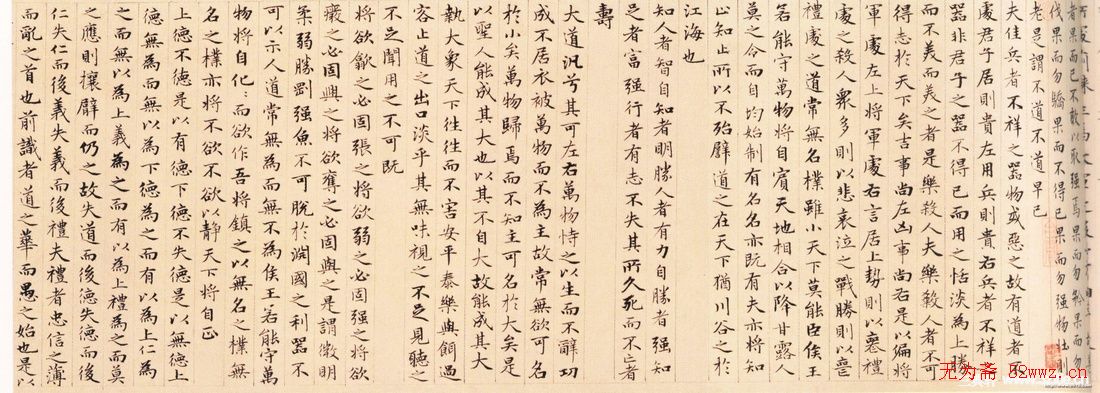 者果而已不敢以取强焉果而勿矜果而勿
伐果而勿驕果而不得已果而勿强物壯則
老是謂不道不道早已
夫佳兵者不祥之器物或惡之故有道者不
處君子居則貴左用兵則貴右兵者不祥
器非君子之器不得已而用之恬淡為上勝
而不美而美之者是樂殺人夫樂殺人者不可
得志於天下矣吉事尚左凶事尚右是以偏將
軍處左上將軍處右言居上勢則以喪禮
處之殺人衆多則以悲哀泣之戰勝則以喪
禮處之道常無名樸雖小天下莫能臣侯王
若能守萬物將自賓天地相合以降甘露人
莫之令而自均始制有名名亦既有夫亦將知
止知止所以不殆譬道之在天下猶川谷之於
江海也
知人者智自知者明勝人者有力自勝者强知
足者富强行者有志不失其所久死而不亡者
壽
大道汎兮其可左右萬物恃之以生而不辭功
成不居衣被萬物而不為主故常無欲可名
於小矣萬物歸焉而不知主可名於大矣是
以聖人能成其大也以其不自大故能成其大
執大象天下往往而不害安平泰樂與餌過
客止道之出口淡乎其無味視之不足見聽之
不足聞用之不可既
將欲歙之必固張之將欲弱之必固强之將欲
廢之必固興之將欲奪之必固與之是謂微明
柔弱勝剛强魚不可脫於淵國之利器不
可以示人道常無為而無不為侯王若能守萬
物將自化:而欲作吾將鎮之以無名之樸無
名之樸亦將不欲不欲以靜天下將自正
上德不德是以有德下德不失德是以無德上
德無為而無以為下德為之而有以為上仁為
之而無以為上義為之而有以為上禮為之而莫
之應則攘臂而仍之故失道而後德失德而後
仁失仁而後義失義而後禮夫禮者忠信之薄
而亂之首也前識者道之華而愚之始也是以
无为斋 52wwz.cn